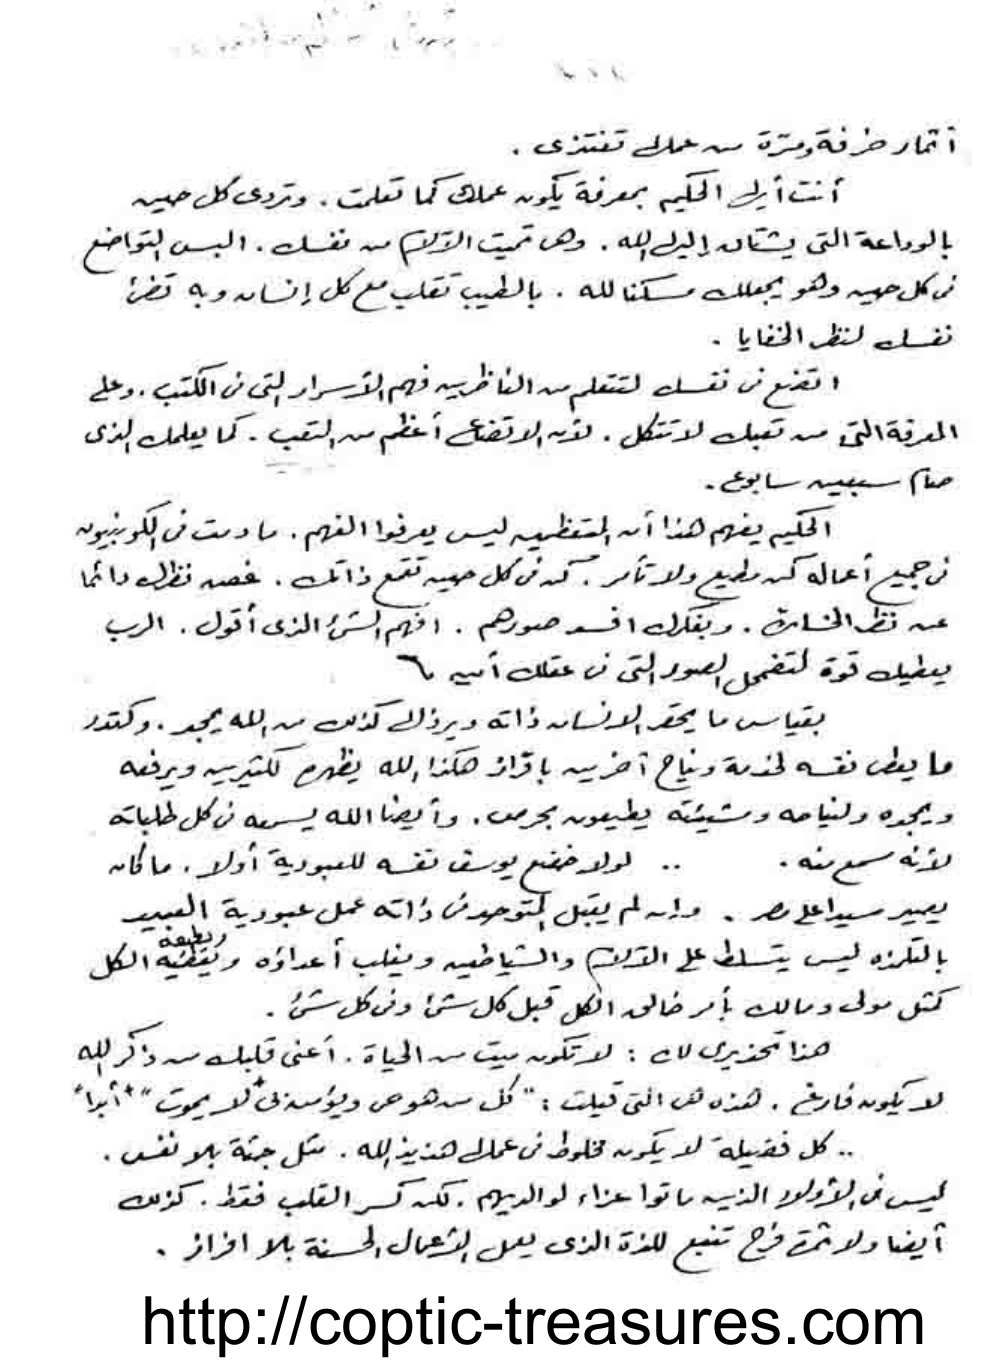 أثمار خرفة ومرّة من عملك تغتذى .
أنت أيها الحكيم بمعرفة يكون عملك كما تعلمت . وتردى كل حين
بالوداعة التى يشتاق إليها الله . وهى تميت الآلام من نفسك . البس التواضع
فى كل حين وهو يجعلك مسكنا لله . بالطيب تقلب مع كل إنسان وبه تضئ
نفسك لنظر الخفايا .
اتضع فى نفسك لتتعلم من الناظرين فهم الأسرار التى فى الكتب . وعلى
المعرفة التى من تعبك لا تتكل . لأن الاتضاع أعظم من التعب . كما يعلمك الذى
صام سبعين سابوع .
الحكيم يفهم هذا أن المتعظمين ليس يعرفوا الفهم . ما دمت فى الكونبيون
فى جميع أعماله كن مطيع ولا تأمر . كن فى كل حين تقمع ذاتك . غصن نظرك دائما
عن نظر الخسائر . وبفكرك افسد صورهم . افهم الشئ الذى أقول . الرب
يعطيك قوة لتضمحل الصور التى فى عقلك أمين
بقياس ما يحقر الانسان ذاته ويرذلها كذلك من الله يمجد . وكقدر
ما يعطى نفسه لخدمة ونياح آخرين بافراز هكذا الله يظهره لكثيرين ويرفعه
ويمجده ولنياحه ومشيئته يطيعون بحرص . وأيضا الله يسمعه فى كل طلباته
لأنه سمع منه . .. لولا خضع يوسف نفسه للعبودية أولا . ما كان
يصير سيدا على مصر . وإن لم يقبل المتوحد فى ذاته عمل عبودية العبيد
بالتلمذه ليس يتسلط على الآلام والشياطين ويغلب أعداؤه ويطيعه الكل
كمثل مولى ومالك بأمر خالق الكل قبل كل شئ وفى كل شئ .
هذا تحذيرى لك : لا تكون ميت من الحياة . أعنى قلبك من ذكر الله
لا يكون فارغ . هذه هى التى قيلت : " كل من هو حى ويؤمن بى لا يموت " " أبدا "
.. كل فضيلة لا يكون مخلوط فى عملها هذيذ الله . مثل جثة بلا نفس .
ليس فى الأولاد الذين ماتوا عزاء لوالديهم . لكن كسر القلب فقط . كذلك
أيضا ولا ثمرة فرح تنبع للذة الذى يعمل الأعمال الحسنة بلا افراز .
http://coptic-treasures.com